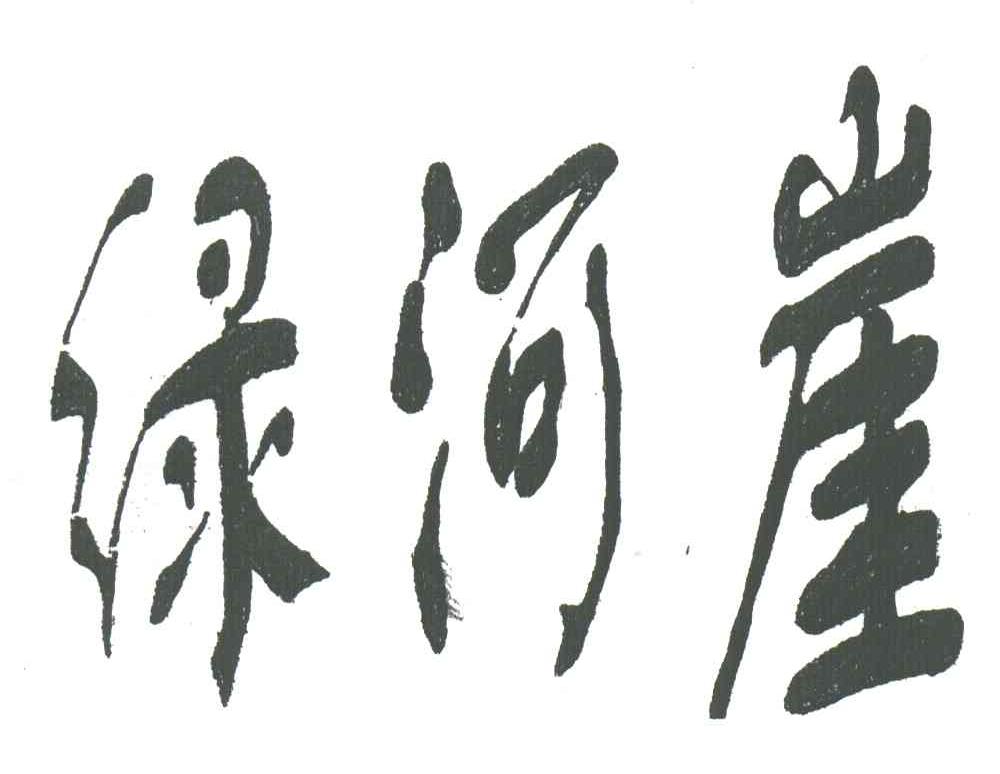 绿河崖